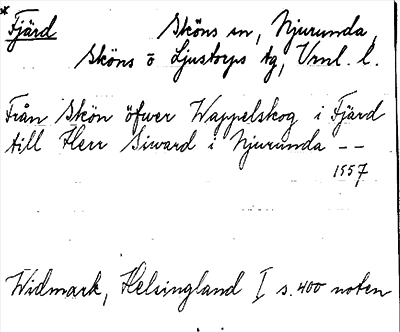 * Fjärd Sköns sn, Njurunda,
Sköns o Ljustorps tg, Vrnl. l.
Från Skön öfwer Wappelskog i Fjärd
till Herr Siward i Njurunda --
1557
Widmark, Helsingland I s. 400 noten